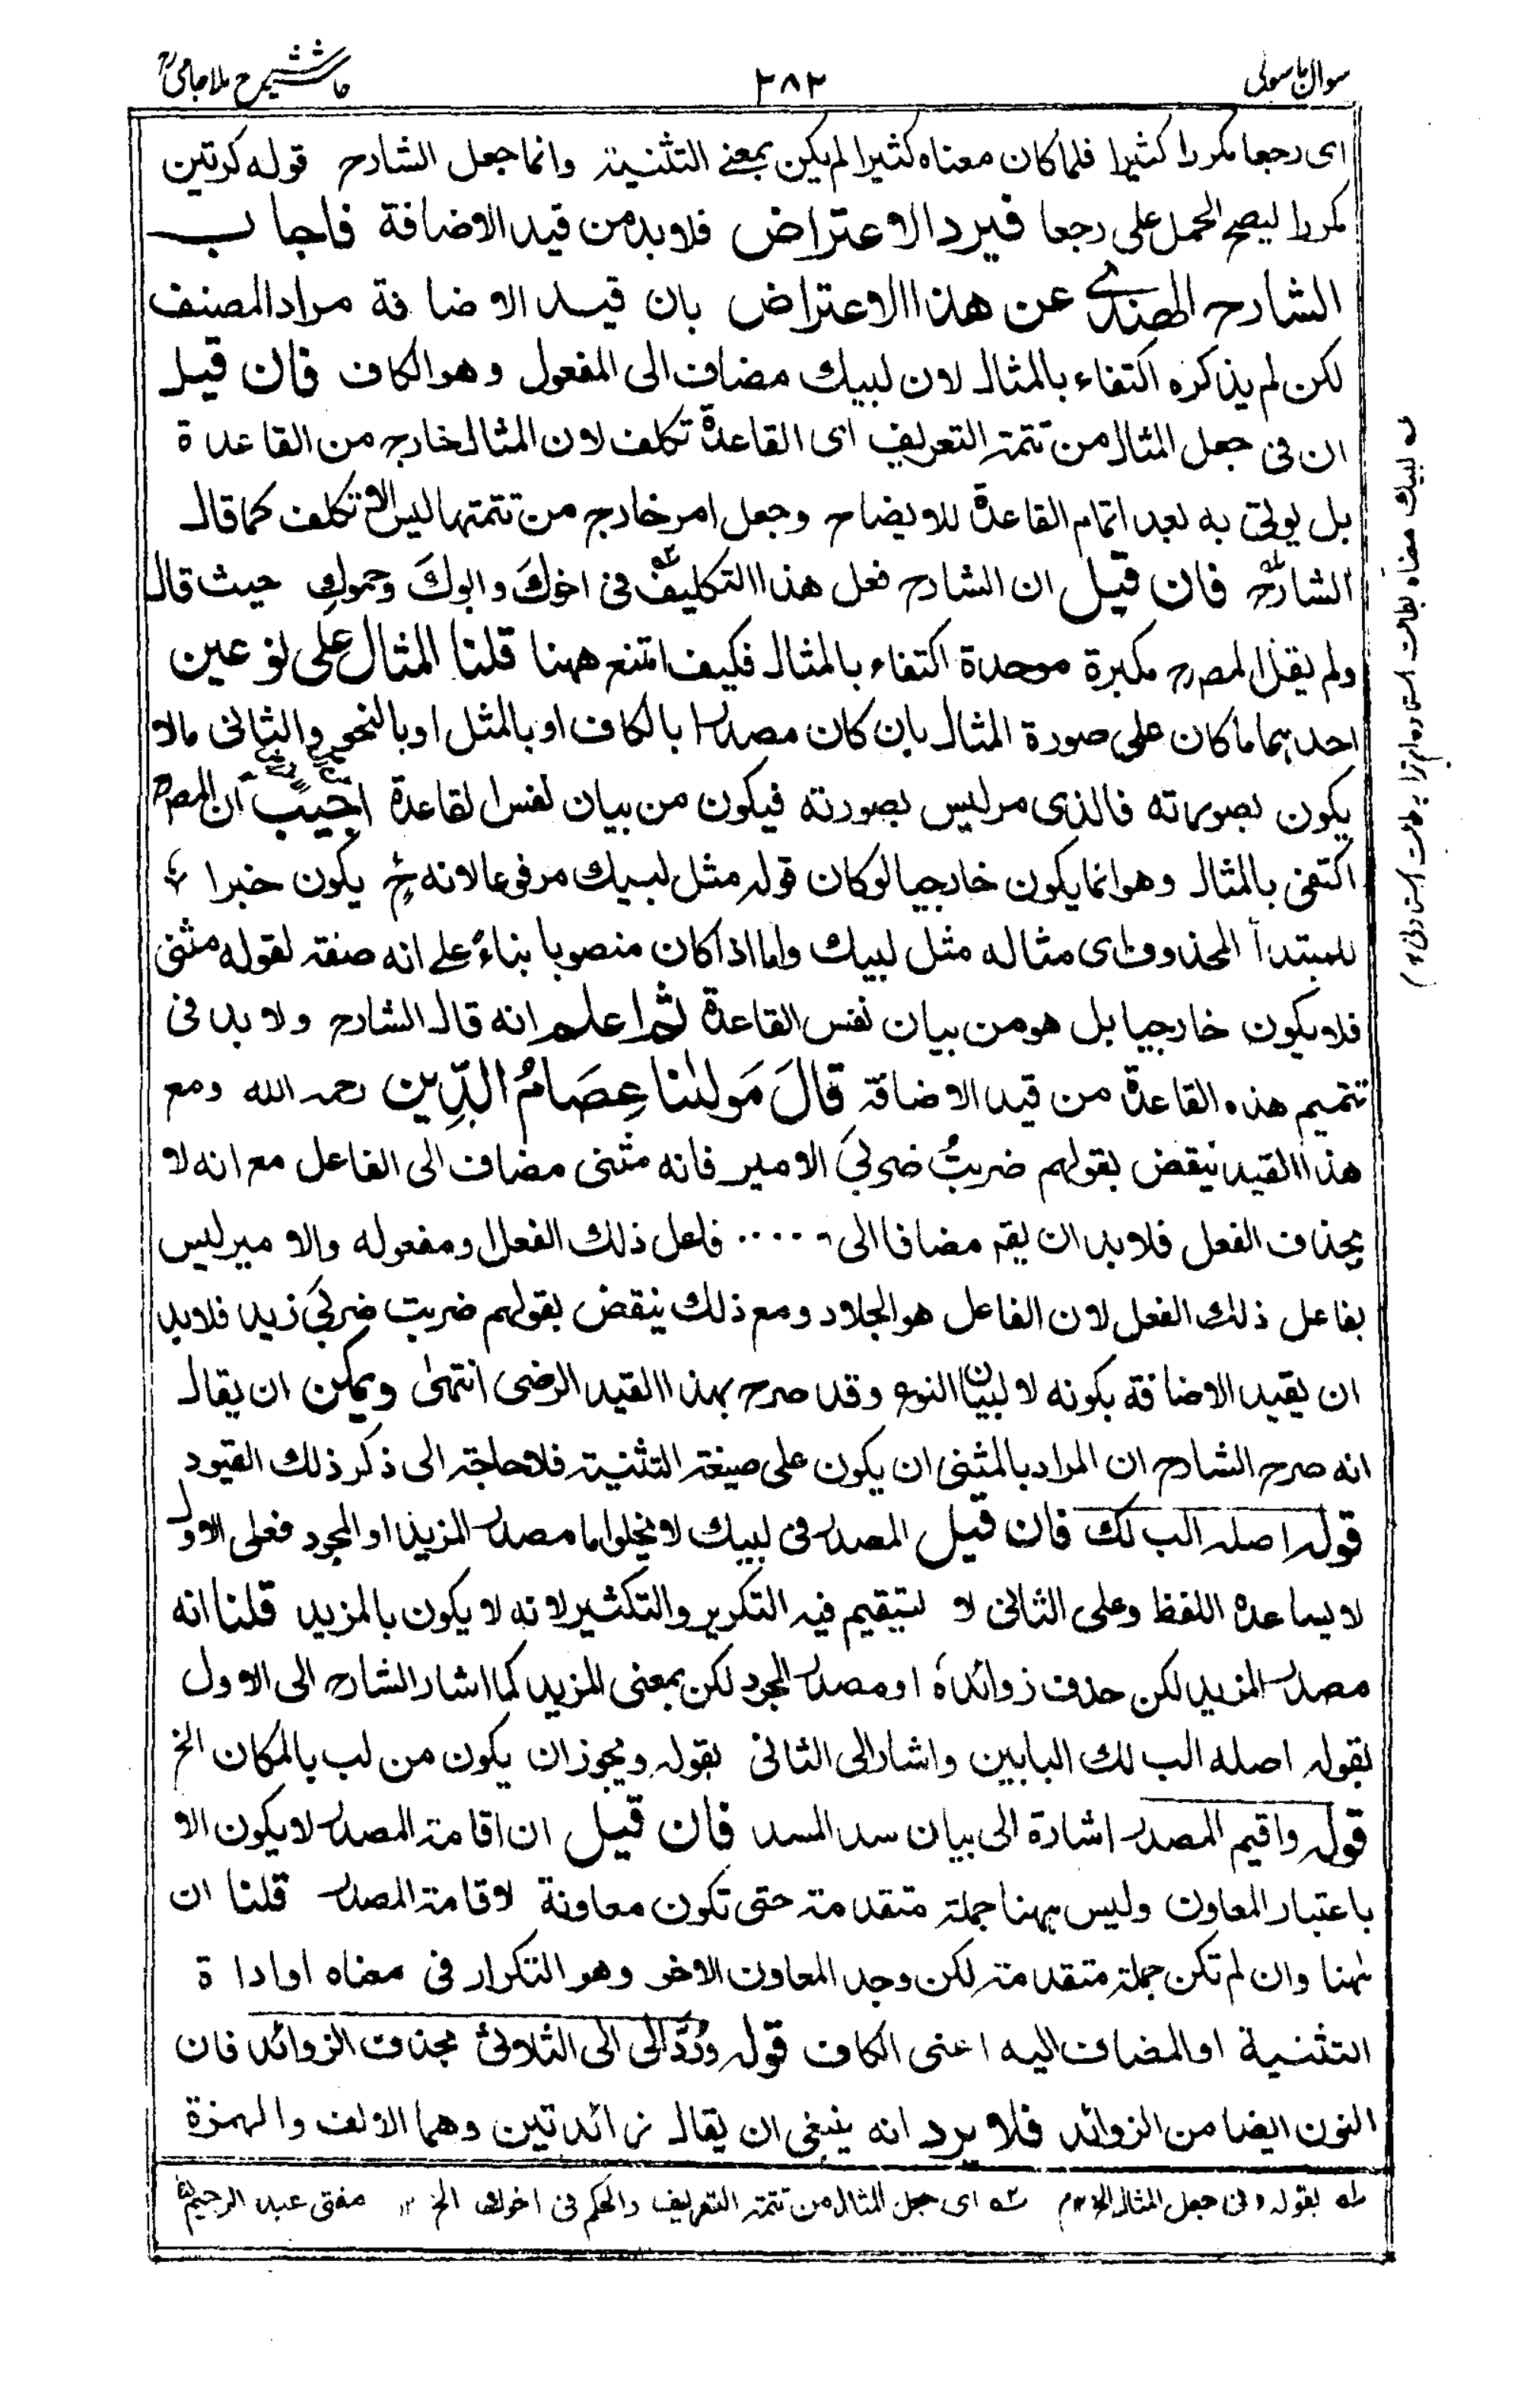 سوال باسولی ٣٨٢ حاشیہ شرح ملا جامیؒ
ای رجعا مكررا كثيرا فلما كان معناه كثيرا لم يكن بمعنى التثنية وانما جعل الشارح قوله كرتين
مكررا ليصح الحمل على رجعا فيرد الاعتراض فلا بد من قيد الاضافة فاجاب
الشارح الهندي عن هذا الاعتراض بان قيد الاضافة مراد المصنف
لكن لم يذكره اكتفاء بالمثال لان لبيك مضاف الى المفعول وهو الكاف فان قيل
ان فى جعل المثال من تتمة التعريف اى القاعدة تكلف لان المثال خارج من القاعدة
بل يؤتى به بعد اتمام القاعدة للايضاح وجعل امر خارج من تتمتها ليس الا تكلف كما قال
الشارح فان قيل ان الشارح فعل هذا التكليف فى اخوك وابوك وحموك حيث قال
ولم يقل المصرح مكبرة موحدة اكتفاء بالمثال فكيف امتنع ههنا قلنا المثال على نوعين
احدهما ما كان على صورة المثال بان كان مصدرا بالكاف او بالمثل او بالنحو والثانى مالا
يكون بصورته فالذى مر ليس بصورته فيكون من بيان نفس القاعدة اجيب ان المصرح
اكتفى بالمثال وهو انما يكون خارجيا لو كان قوله مثل لبيك مرفوعا لانه ح يكون خبرا
للمبتدأ المحذوف اى مثاله مثل لبيك واما اذا كان منصوبا بناءً على انه صفة لقوله مثنى
فلا يكون خارجيا بل هو من بيان نفس القاعدة ثم اعلم انه قال الشارح ولا بد فى
تتميم هذه القاعدة من قيد الاضافة قَالَ مَولٰنا عِصَامُ الدِّين رحمه الله ومع
هذا القيد ينقض بقولهم ضربتُ ضربَي الامير فانه مثنى مضاف الى الفاعل مع انه لا
يحذف الفعل فلا بد ان يقع مضافا الى ..... فاعل ذلك الفعل او مفعوله والامير ليس
بفاعل ذلك الفعل لان الفاعل هو الجلاد ومع ذلك ينقض بقولهم ضربت ضربَي زيد فلا بد
ان يقيد الاضافة بكونه لا لبيان النوع وقد صرح بهذا القيد الرضى انتهىٰ ويمكن ان يقال
انه صرح الشارح ان المراد بالمثنى ان يكون على صيغة التثنية فلا حاجة الى ذكر ذلك القيود
قوله اصله الب لك فان قيل المصدر فى لبيك لا يخلوا ما مصدر المزيد او المجرد فعلى الاول
لا يساعده اللفظ وعلى الثانى لا يستقيم فيه التكرير والتكثير لانه لا يكون بالمزيد قلنا انه
مصدر المزيد لكن حذف زوائده او مصدر المجرد لكن بمعنى المزيد كما اشار الشارح الى الاول
بقوله اصله الب لك البابين واشار الى الثانى بقوله ويجوز ان يكون من لب بالمكان الخ
قوله واقيم المصدر اشارة الى بيان سد المسد فان قيل ان اقامة المصدر لا يكون الا
باعتبار المعاون وليس ههنا جملة متقدمة حتى تكون معاونة لاقامة المصدر قلنا ان
ههنا وان لم تكن جملة متقدمة لكن وجد المعاون الاخر وهو التكرار فى معناه او اداة
التثنية او المضاف اليه اعنى الكاف قوله ورُدَّ الى الى الثلاثى بحذف الزوائد فان
النون ايضا من الزوائد فلا يرد انه ينبغى ان يقال زائدتين وهما الالف والهمزة
له بقوله وفى جعل المثال الخ ١٢م ٢ه اى جعل المثال من تتمة التعريف والحكم فى اخوك الخ ١٢ مفتى عبد الرحيم
له لبيك مضاف